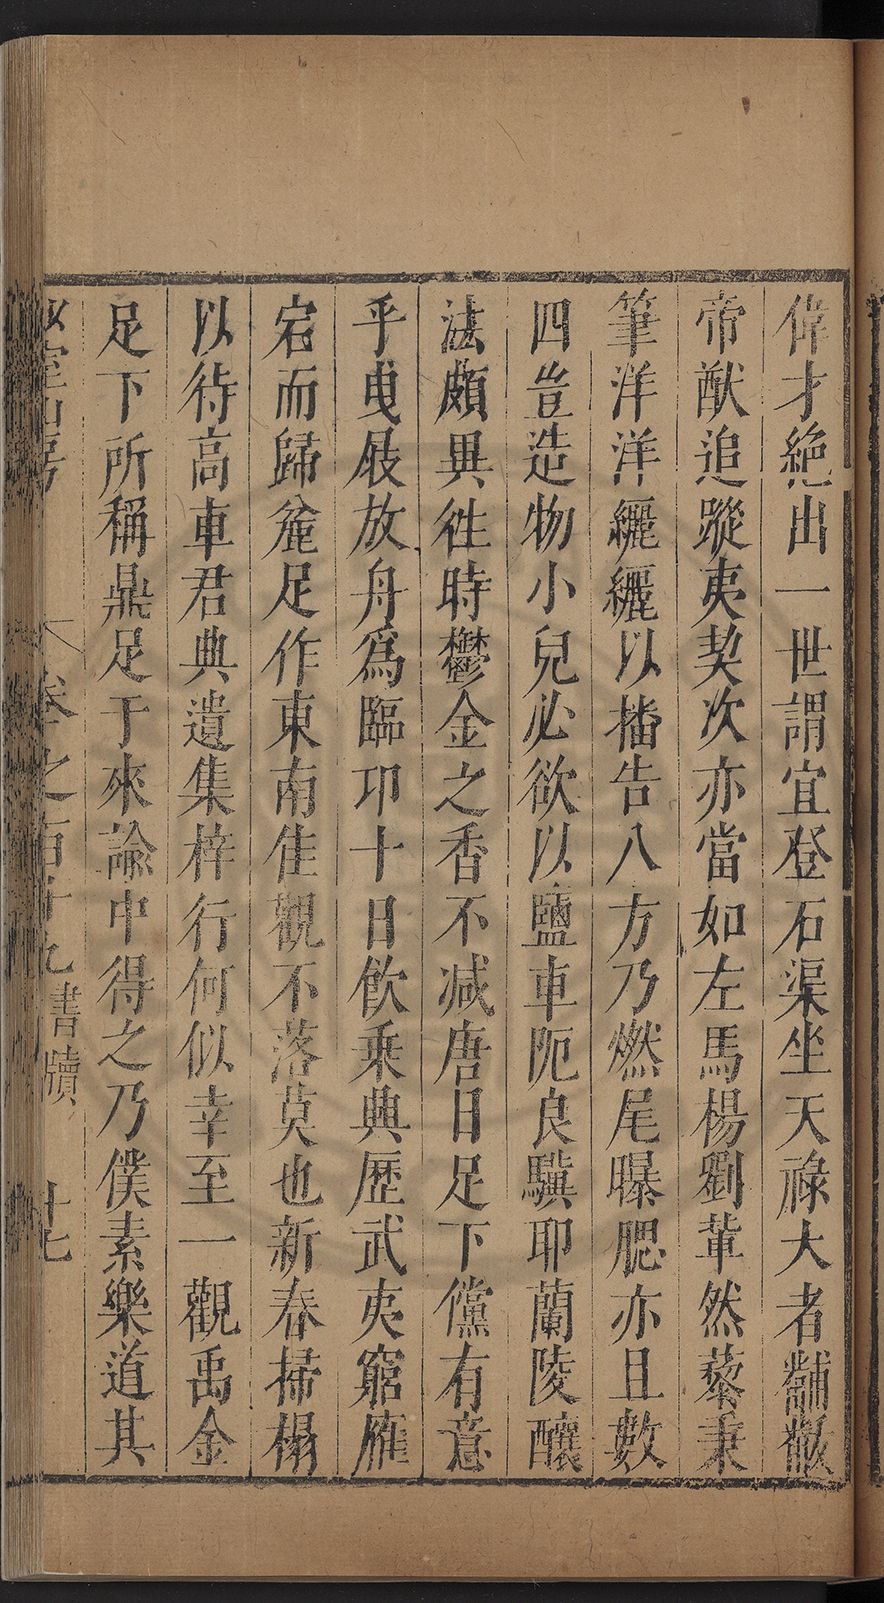 偉才絶出一世謂宜登石渠坐天祿大者黼黻
帝猷追蹤夷契次亦當如左馬楊劉軰然藜秉
筆洋洋纚纚以播告八方乃燃尾曝腮亦且數
四豈造物小兒必欲以鹽車阨良驥耶蘭陵釀
法頗異徃時鬱金之香不减唐日足下儻有意
乎曵屐放舟爲臨卭十日飲乗興歷武夷窮雁
宕而歸葢足作東南佳觀不落莫也新春掃榻
以待高車君典遺集梓行何似幸至一觀禹金
足下所稱鼎足于來諭中得之乃僕素樂道其
山房
卷之百十九書牘
廿七